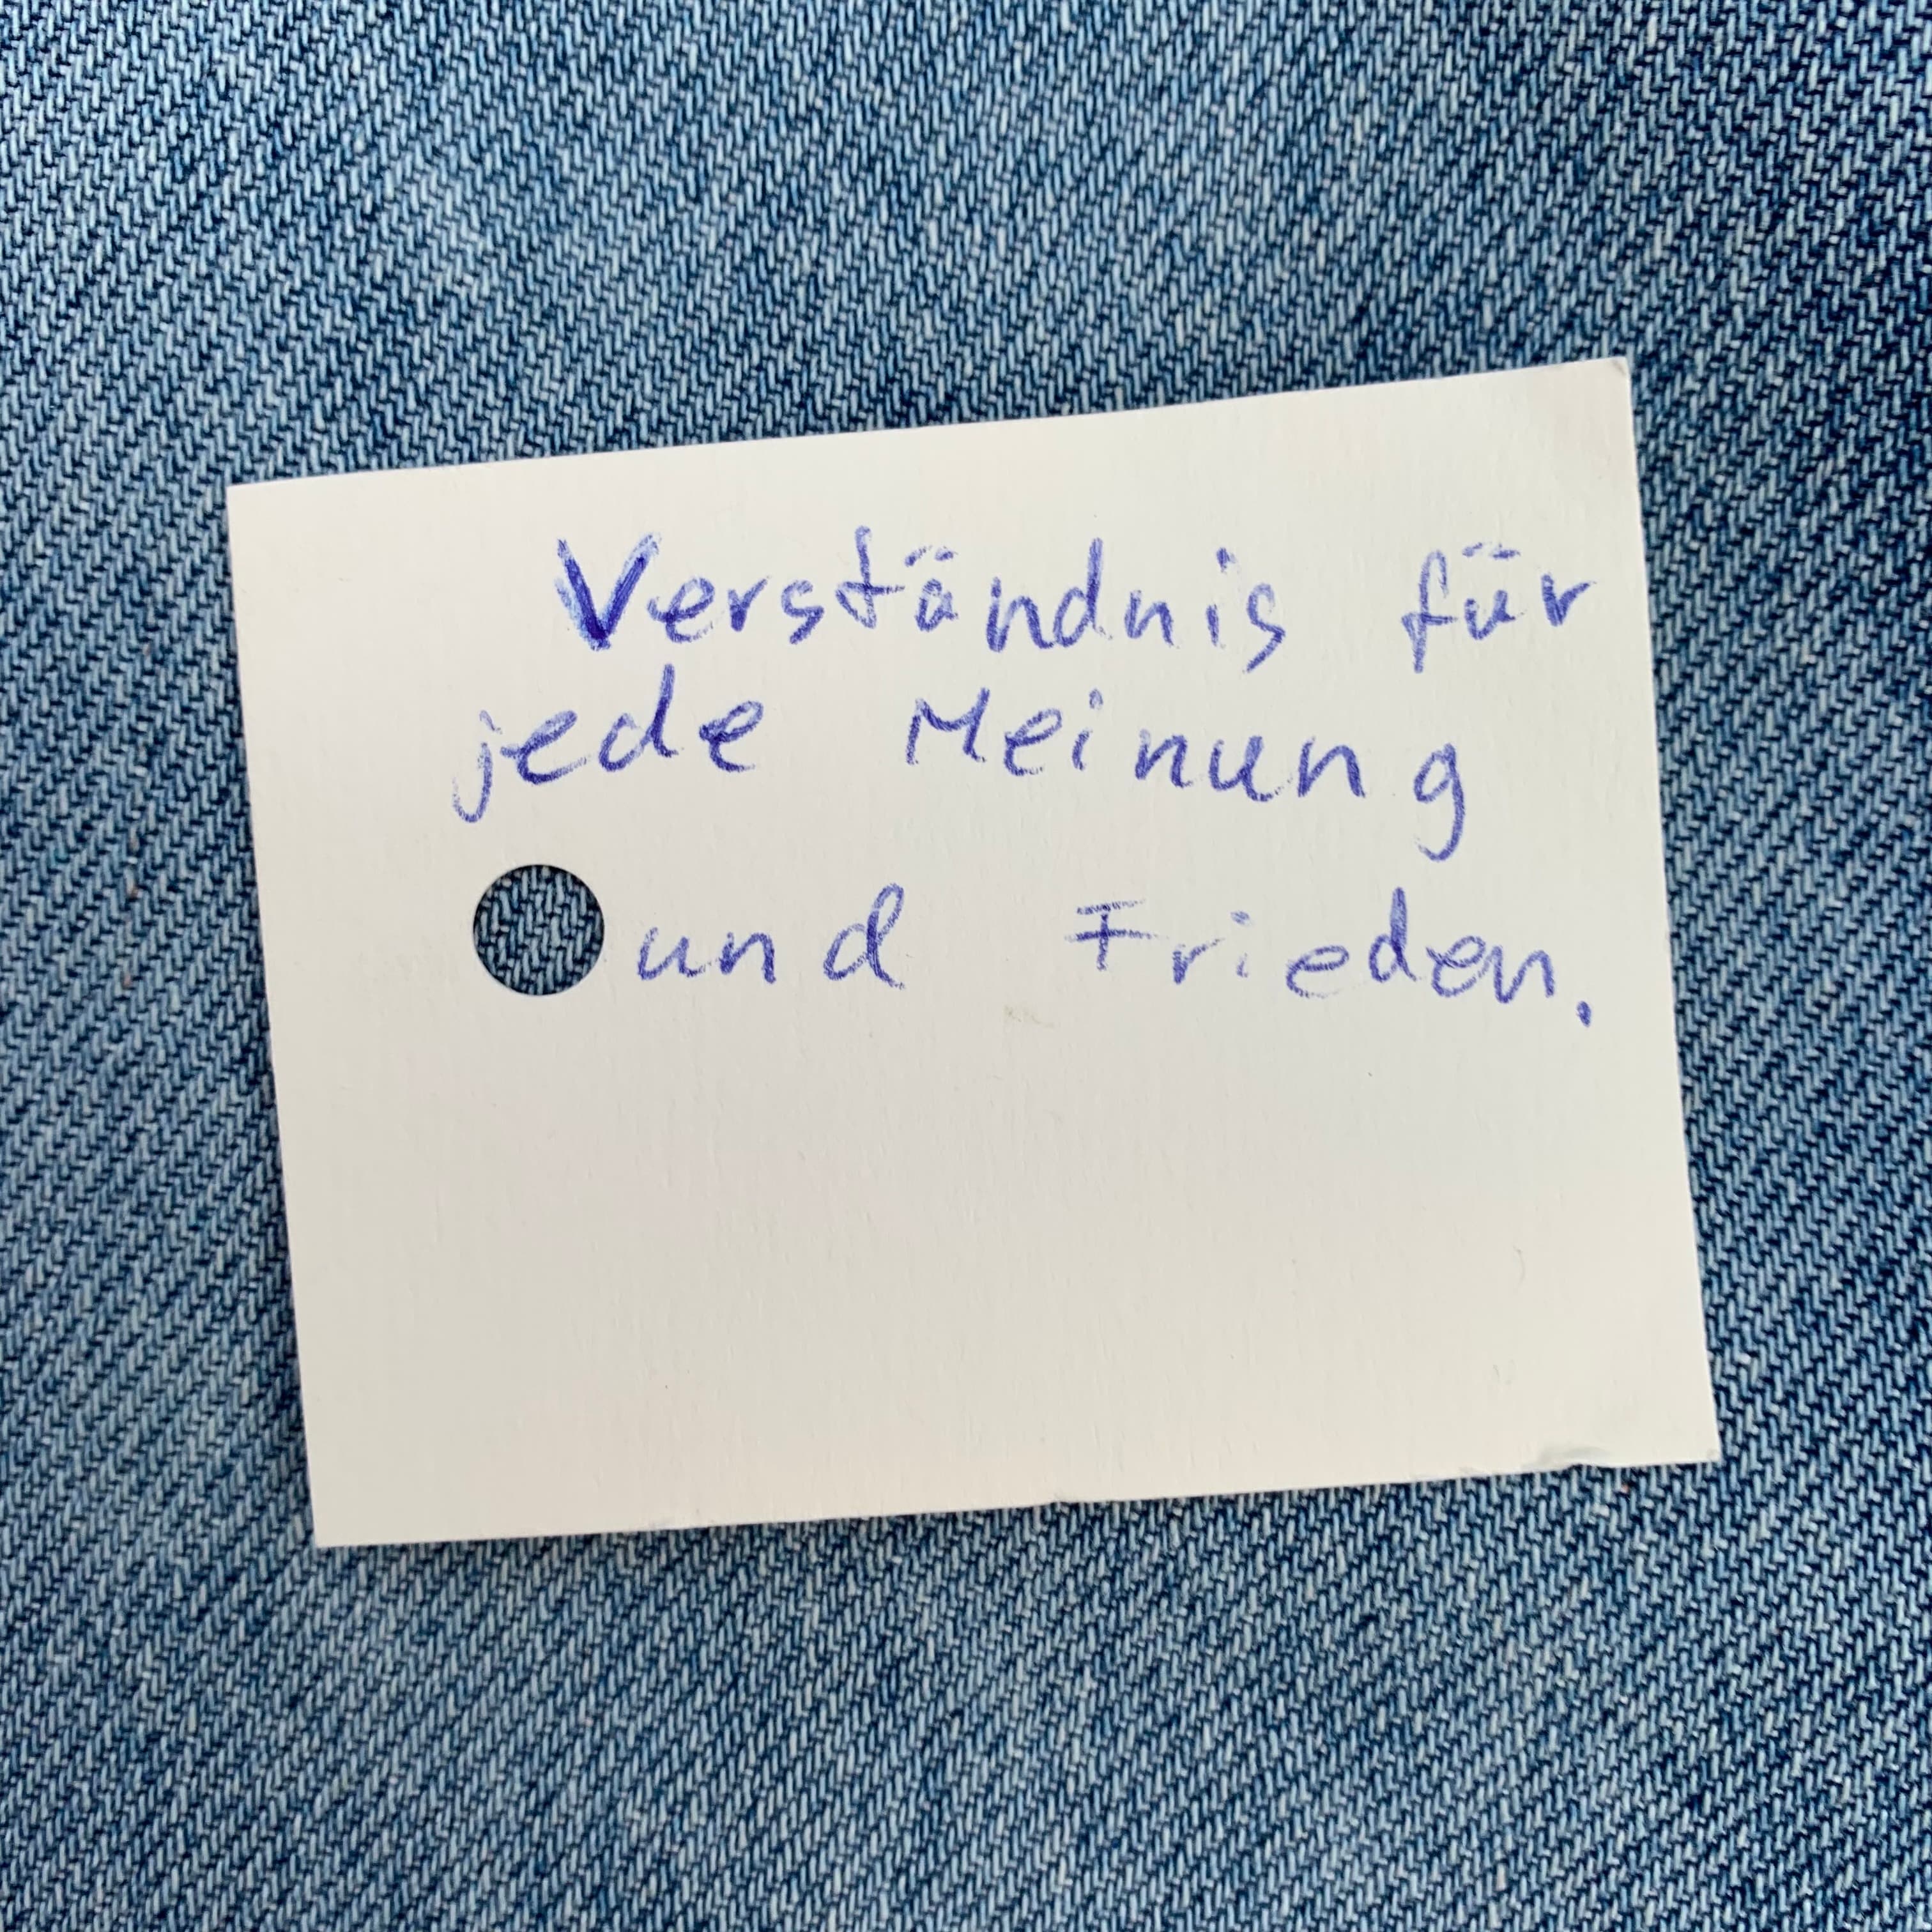 Verständnis für
jede Meinung
und Frieden.